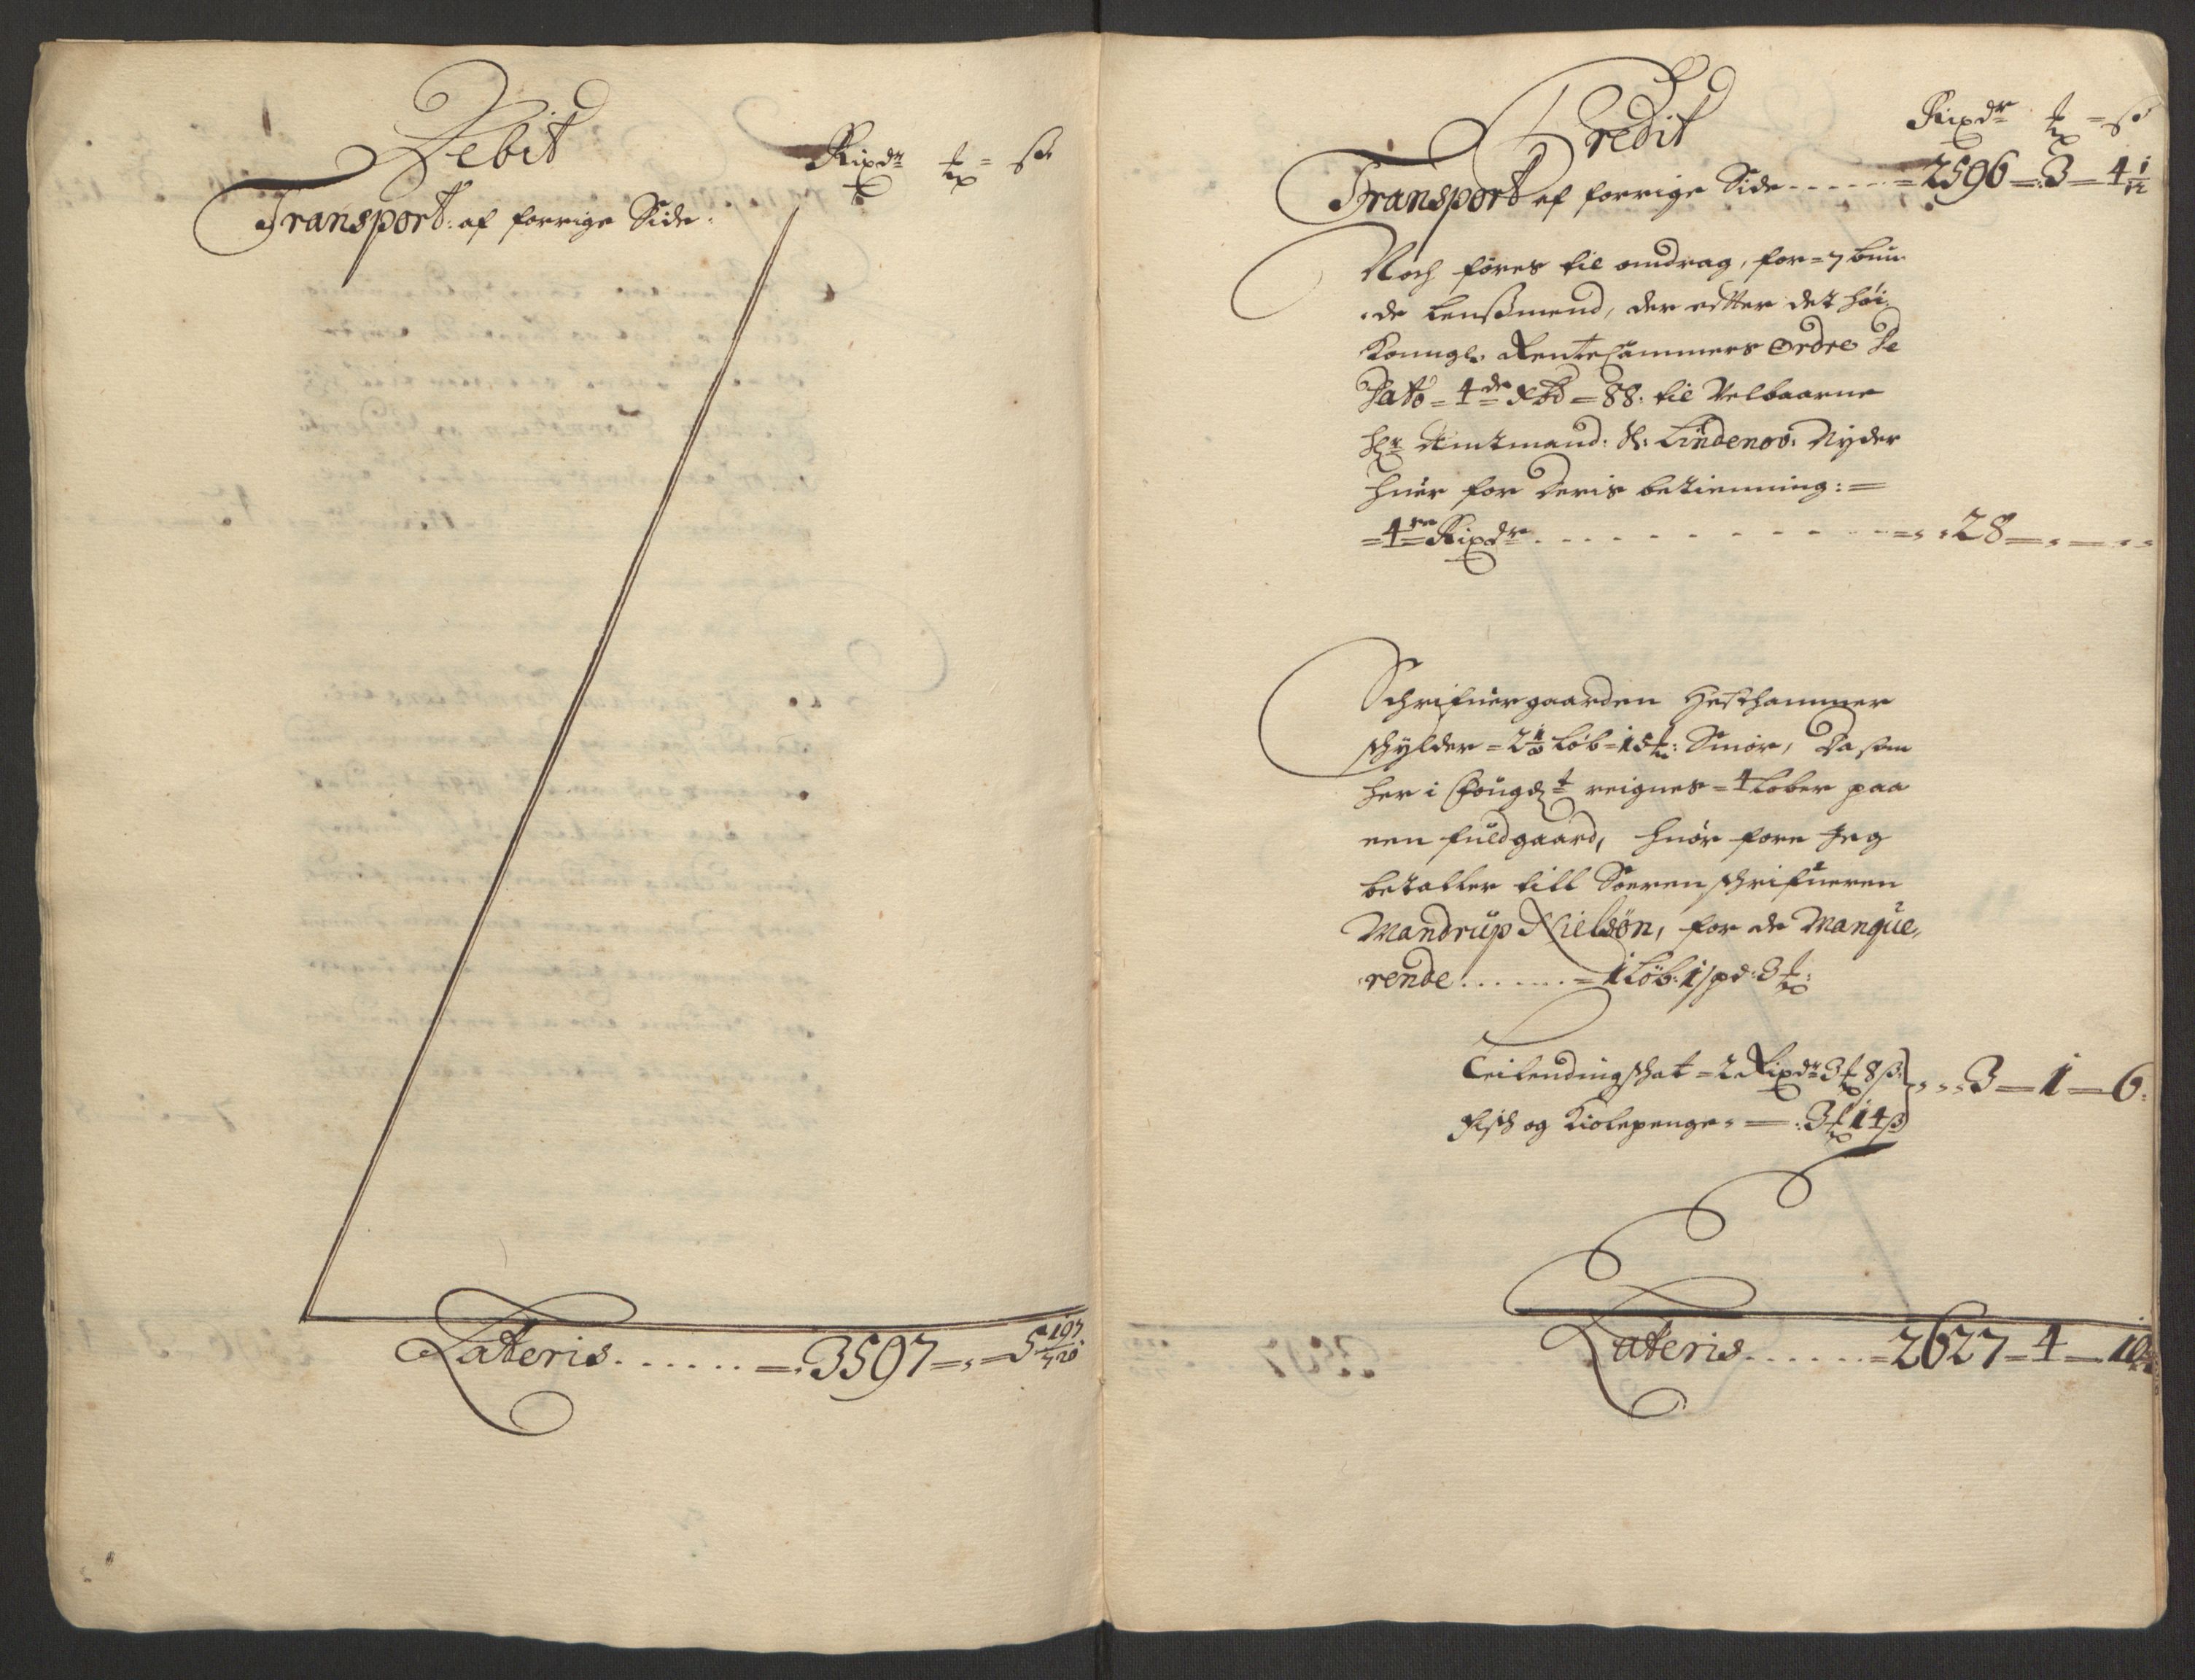 Debit
Rixdr ℔ = ß
Transport: af forrige Side.
Lateris. . . . . . . = 3597 = , = 5 197/720
Credit
Rixdr ℔ = ß
Transport af forrige Side - - - - - = 2596 = 3 = 4 1/12
Noch föres til omdrag, for = 7 bun-
de Lensmend, der efter det höi
Konngl. Rentecammers Ordre De
Dato = 4de Xbr = 88. til Velbaarne
Hr Amtmand: H: Lindenov: Nyder
huer for deris betienning: =
= 4re Rixdr - - - - - - - - - = 28 = , = , =
Schrifuergaarden Hesthammer
schylder = 2 1/2 Löb = 15 ℔: Smör, Da som
her i Fougdt reignes = 4 Löber paa
een fuldgaard, huor fore Jeg
betaller till Soerenschrifueren
Mandrup Nielsön, for de Manque,
rende . . . . . . = 1 Löb: 1/pd: 3 ℔:
Leilendingschat = 2 Rixdr 3 ℔ 8 ß: } - - - 3 = 1 = 6.
Fisch og Kiolepenge, = : 3 ℔ 14 ß
Lateris. . . . . . = 2627 = 4 = 10